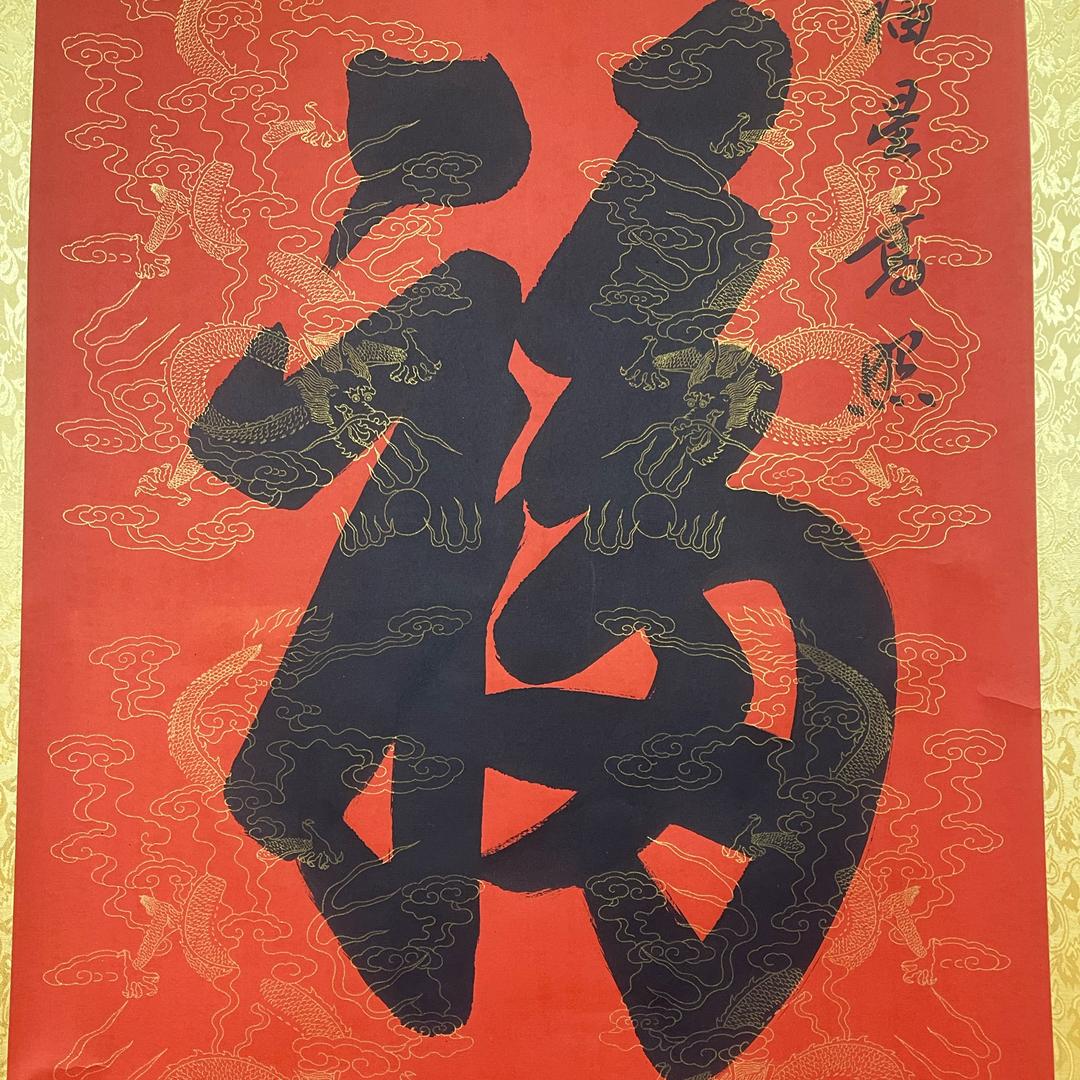 福星高照
福